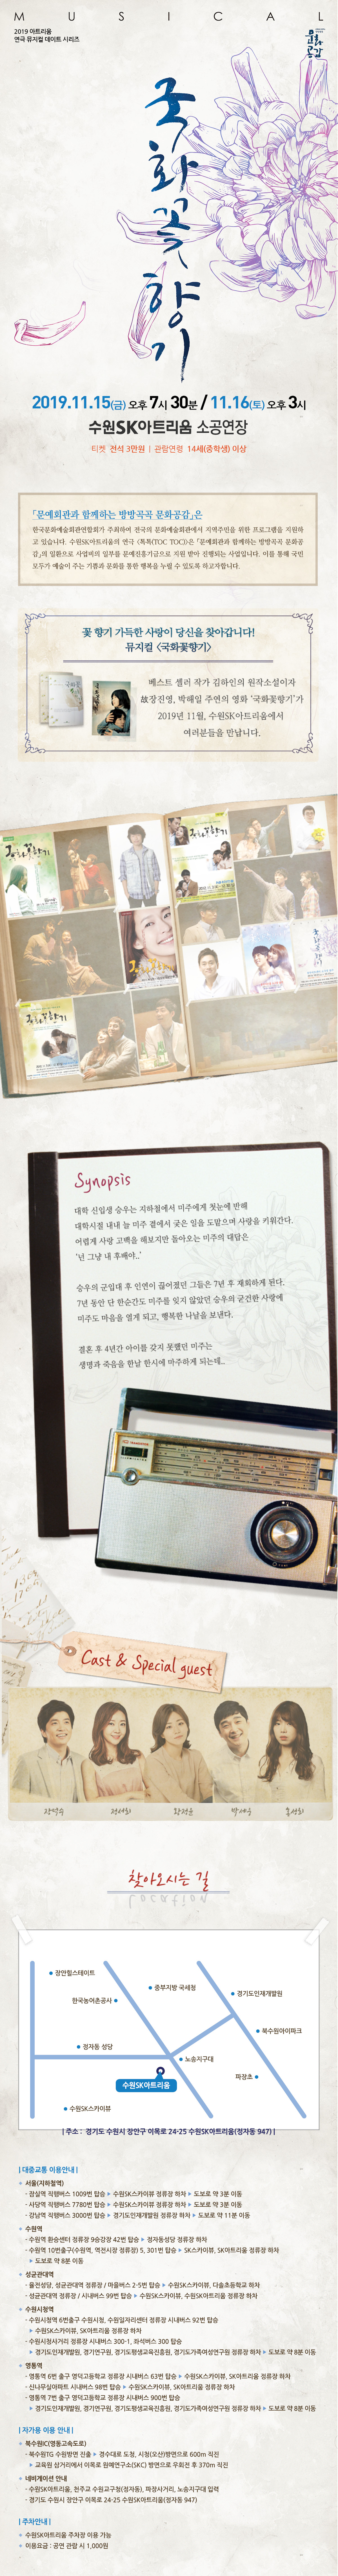 MUSICAL
2019 아트리움
연극 뮤지컬 데이트 시리즈
국화꽃향기
2019.11.15(금) 오후 7시 30분 / 11.16(토) 오후 3시
수원SK아트리움 소공연장
티켓 전석 3만원 | 관람연령 14세(중학생) 이상
「문예회관과 함께하는 방방곡곡 문화공감」은
한국문화예술회관연합회가 주최하여 전국의 문화예술회관에서 지역주민을 위한 프로그램을 지원하
고 있습니다. 수원SK아트리움의 연극 <톡톡(TOC TOC)>은 「문예회관과 함께하는 방방곡곡 문화공
감」의 일환으로 사업비의 일부를 문예진흥기금으로 지원 받아 진행되는 사업입니다. 이를 통해 국민
모두가 예술이 주는 기쁨과 문화를 통한 행복을 누릴 수 있도록 하고자합니다.
꽃 향기 가득한 사랑이 당신을 찾아갑니다!
뮤지컬 <국화꽃향기>
베스트 셀러 작가 김하인의 원작소설이자
故장진영, 박해일 주연의 영화 '국화꽃향기'가
2019년 11월, 수원SK아트리움에서
여러분들을 만납니다.
국화꽃향기
국화꽃향기
국화꽃향기
Synopsis
대학 신입생 승우는 지하철에서 미주에게 첫눈에 반해
대학시절 내내 늘 미주 곁에서 궂은 일을 도맡으며 사랑을 키워간다.
어렵게 사랑 고백을 해보지만 돌아오는 미주의 대답은
'넌 그냥 내 후배야..'
승우의 군입대 후 인연이 끊어졌던 그들은 7년 후 재회하게 된다.
7년 동안 단 한순간도 미주를 잊지 않았던 승우의 굳건한 사랑에
미주도 마음을 열게 되고, 행복한 나날을 보낸다.
결혼 후 4년간 아이를 갖지 못했던 미주는
생명과 죽음을 한날 한시에 마주하게 되는데...
Cast & Special guest
찾아오시는 길
Location
장안힐스테이트
중부지방 국세청
한국농어촌공사
경기도인재개발원
북수원아이파크
정자동 성당
노송지구대
파장초
수원SK아트리움
수원SK스카이뷰
| 주소 : 경기도 수원시 장안구 이목로 24-25 수원SK아트리움(정자동 947) |
| 대중교통 이용안내 |
서울(지하철역)
- 잠실역 직행버스 1009번 탑승 ▶ 수원SK스카이뷰 정류장 하차 ▶ 도보로 약 3분 이동
- 사당역 직행버스 7780번 탑승 ▶ 수원SK스카이뷰 정류장 하차 ▶ 도보로 약 3분 이동
- 강남역 직행버스 3000번 탑승 ▶ 경기도인재개발원 정류장 하차 ▶ 도보로 약 11분 이동
수원역
- 수원역 환승센터 정류장 9승강장 42번 탑승 ▶ 정자동성당 정류장 하차
- 수원역 10번출구(수원역, 역전시장 정류장) 5, 301번 탑승 ▶ SK스카이뷰, SK아트리움 정류장 하차
▶ 도보로 약 8분 이동
성균관대역
- 율전성당, 성균관대역 정류장 / 마을버스 2-5번 탑승 ▶ 수원SK스카이뷰, 다솔초등학교 하차
- 성균관대역 정류장 / 시내버스 99번 탑승 ▶ 수원SK스카이뷰, 수원SK아트리움 정류장 하차
수원시청역
- 수원시청역 6번출구 수원시청, 수원일자리센터 정류장 시내버스 92번 탑승
▶ 수원SK스카이뷰, SK아트리움 정류장 하차
- 수원시청사거리 정류장 시내버스 300-1, 좌석버스 300 탑승
▶ 경기도인재개발원, 경기연구원, 경기도평생교육진흥원, 경기도가족여성연구원 정류장 하차 ▶ 도보로 약 8분 이동
영통역
- 영통역 6번 출구 영덕고등학교 정류장 시내버스 63번 탑승 ▶ 수원SK스카이뷰, SK아트리움 정류장 하차
- 신나무실아파트 시내버스 98번 탑승 ▶ 수원SK스카이뷰, SK아트리움 정류장 하차
- 영통역 7번 출구 영덕고등학교 정류장 시내버스 900번 탑승
▶ 경기도인재개발원, 경기연구원, 경기도평생교육진흥원, 경기도가족여성연구원 정류장 하차 ▶ 도보로 약 8분 이동
| 자가용 이용 안내 |
북수원IC(영동고속도로)
- 북수원TG 수원방면 진출 ▶ 경수대로 도청, 시청(오산)방면으로 600m 직진
▶ 교육원 삼거리에서 이목로 원예연구소(SKC) 방면으로 우회전 후 370m 직진
네비게이션 안내
- 수원SK아트리움, 천주교 수원교구청(정자동), 파장사거리, 노송지구대 입력
- 경기도 수원시 장안구 이목로 24-25 수원SK아트리움(정자동 947)
| 주차안내 |
수원SK아트리움 주차장 이용 가능
이용요금 : 공연 관람 시 1,000원